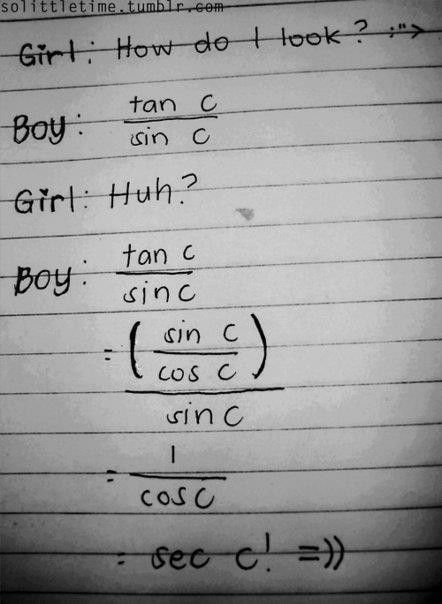 solittletime.tumblr.com
Girl: How do I look? :">
Boy: tan c
sin c
Girl: Huh?
Boy: tan c
sin c
= (sin c
cos c)
sin c
= 1
cos c
= sec c! =))